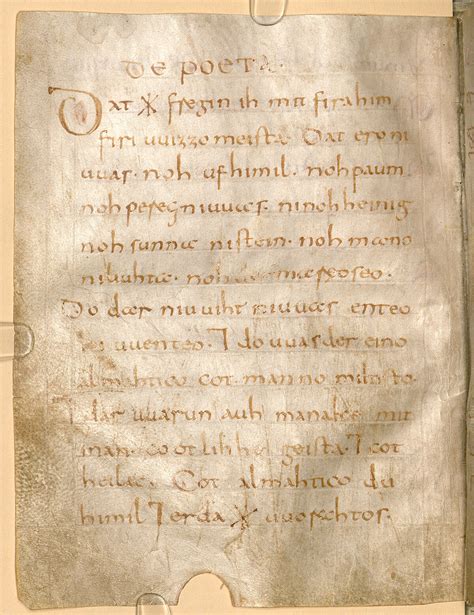 DE POETA.
Dat ᚷ fregin ih mit firahim
firi uuizzo meista. Dat ero ni
uuas. noh ufhimil. noh paum
noh pereg ni uuas. ni noh heinig
noh sunna ni stein. noh mano
ni liuhta. noh der mareo seo.
Do dar niuuiht ni uuas enteo
ni uuenteo. ⁊ do uuas der eino
almahtico cot manno miltisto.
⁊ dar uuarun auh manake mit
inan. cootlihhe geista. ⁊ cot
heilac. Cot almahtico du
himil ⁊ erda ᚷ uuorahtos.